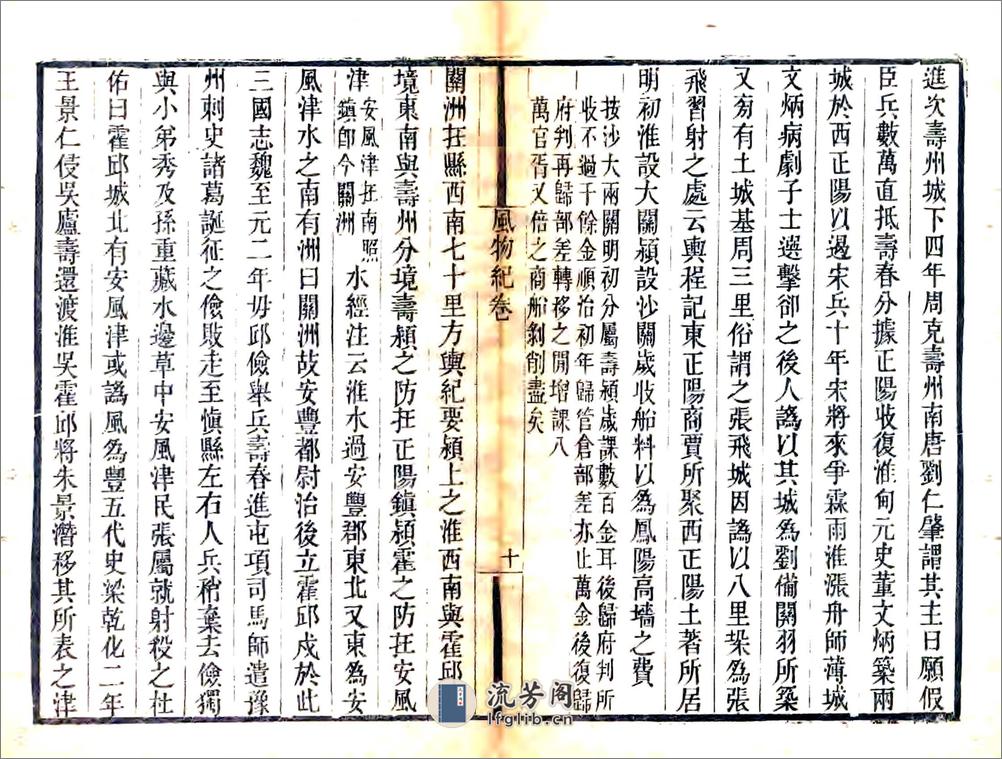 進次壽州城下四年周克壽州南唐劉仁肇謂其主曰願假
臣兵數萬直抵壽春分據正陽收復淮甸元史董文炳築兩
城於西正陽以遏宋兵十年宋將來爭霖雨淮漲舟師薄城
文炳病劇子士選擊卻之後人譌以其城為劉備關羽所築
又旁有土城基周三里俗謂之張飛城因譌以八里垜為張
飛習射之處云輿程記東正陽商賈所聚西正陽土著所居
明初淮設大關潁設沙關歲收船料以為鳳陽高墻之費
按沙大兩關明初分屬壽潁歲課數百金耳後歸府判所
收不過千餘金順治初年歸管倉部差亦止萬金後復歸
府判再歸部差轉移之間增課八
萬官胥又倍之商船剝削盡矣
風物紀卷
十
關洲在縣西南七十里方輿紀要潁上之淮西南與霍邱
境東南與壽州分境壽潁之防在正陽鎮潁霍之防在安風
津
安風津在南照
鎮卽今關洲
水經注云淮水過安豐郡東北又東為安
風津水之南有洲曰關洲故安豐都尉治後立霍邱戍於此
三國志魏至元二年毋邱儉舉兵壽春進屯項司馬師遣豫
州刺史諸葛誕征之儉敗走至慎縣左右人兵稍棄去儉獨
與小弟秀及孫重藏水邊草中安風津民張屬就射殺之杜
佑曰霍邱城北有安風津或譌風為豐五代史梁乾化二年
王景仁侵吳廬壽還渡淮吳霍邱將朱景潛移其所表之津
流芳阁
lfglib.cn